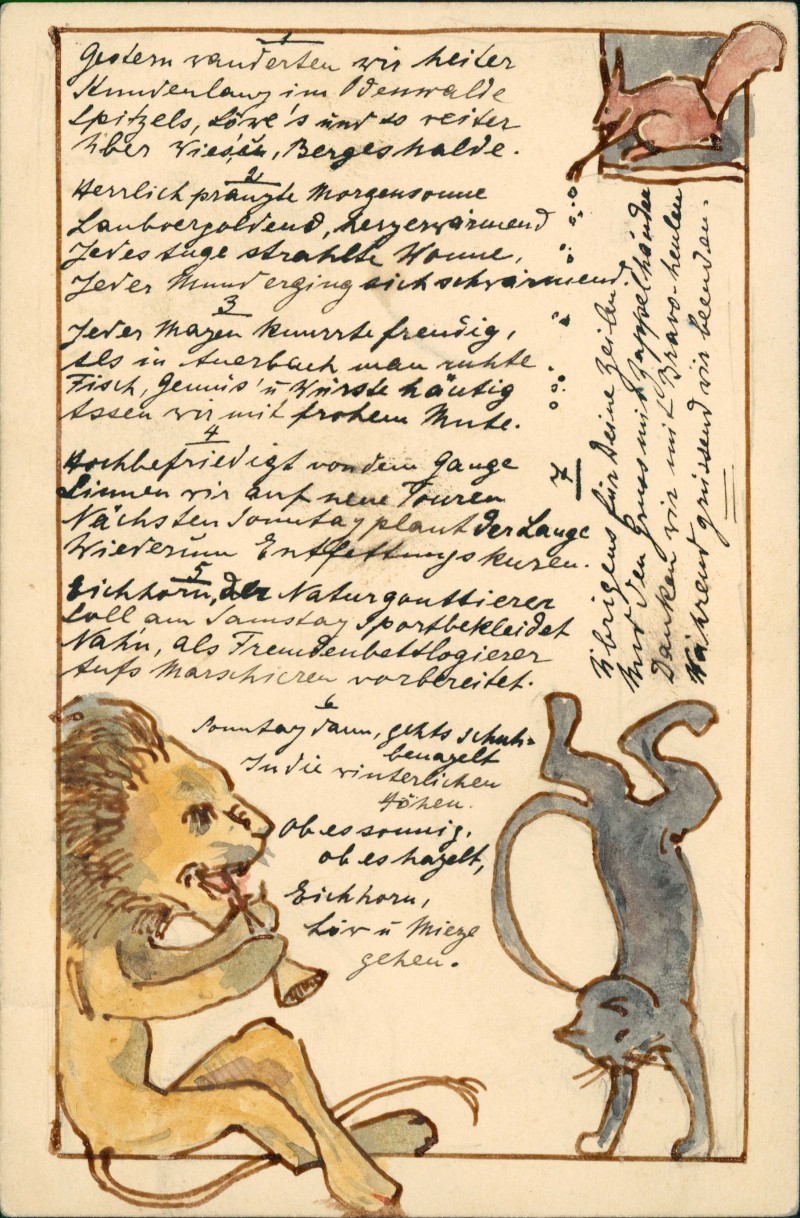 1
Gestern wanderten wir heiter
Stundenlang im Odenwalde
Spitzels, Löwe's und so weiter
Über Wiesen, Bergeshalde.
2
Herrlich prangte Morgensonne
Laubvergoldend, herzerwärmend
Jedes Auge strahlte Wonne,
Jeder Mund erging sich schwärmend.
3
Jeder Magen knurrte freudig,
Als in Auerbach man ruhte.
Fisch, Gemüs' u Würste häutig
Assen wir mit frohem Mute.
4
Hochbefriedigt von dem Gange
Sinnen wir auf neue Touren
Nächsten Sonntag plant der Lange
Wiederum Entfettungskuren.
5
Eichhorn, der Naturgouttierer
Soll am Samstag sportbekleidet
Nah'n, als Fremdenbettlogierer
Aufs Marschieren vorbereitet.
6
Sonntag dann, gehts schuh-
benagelt
In die winterlichen
Höhen.
Ob es sonnig,
ob es hagelt,
Eichhorn,
Löw u Mieze
gehen.
7
Übrigens für Deine Zeilen
Und den Gruss mit Zappelhänden
Danken wir mit Bravo-heulen
Während grüssend wir beenden.